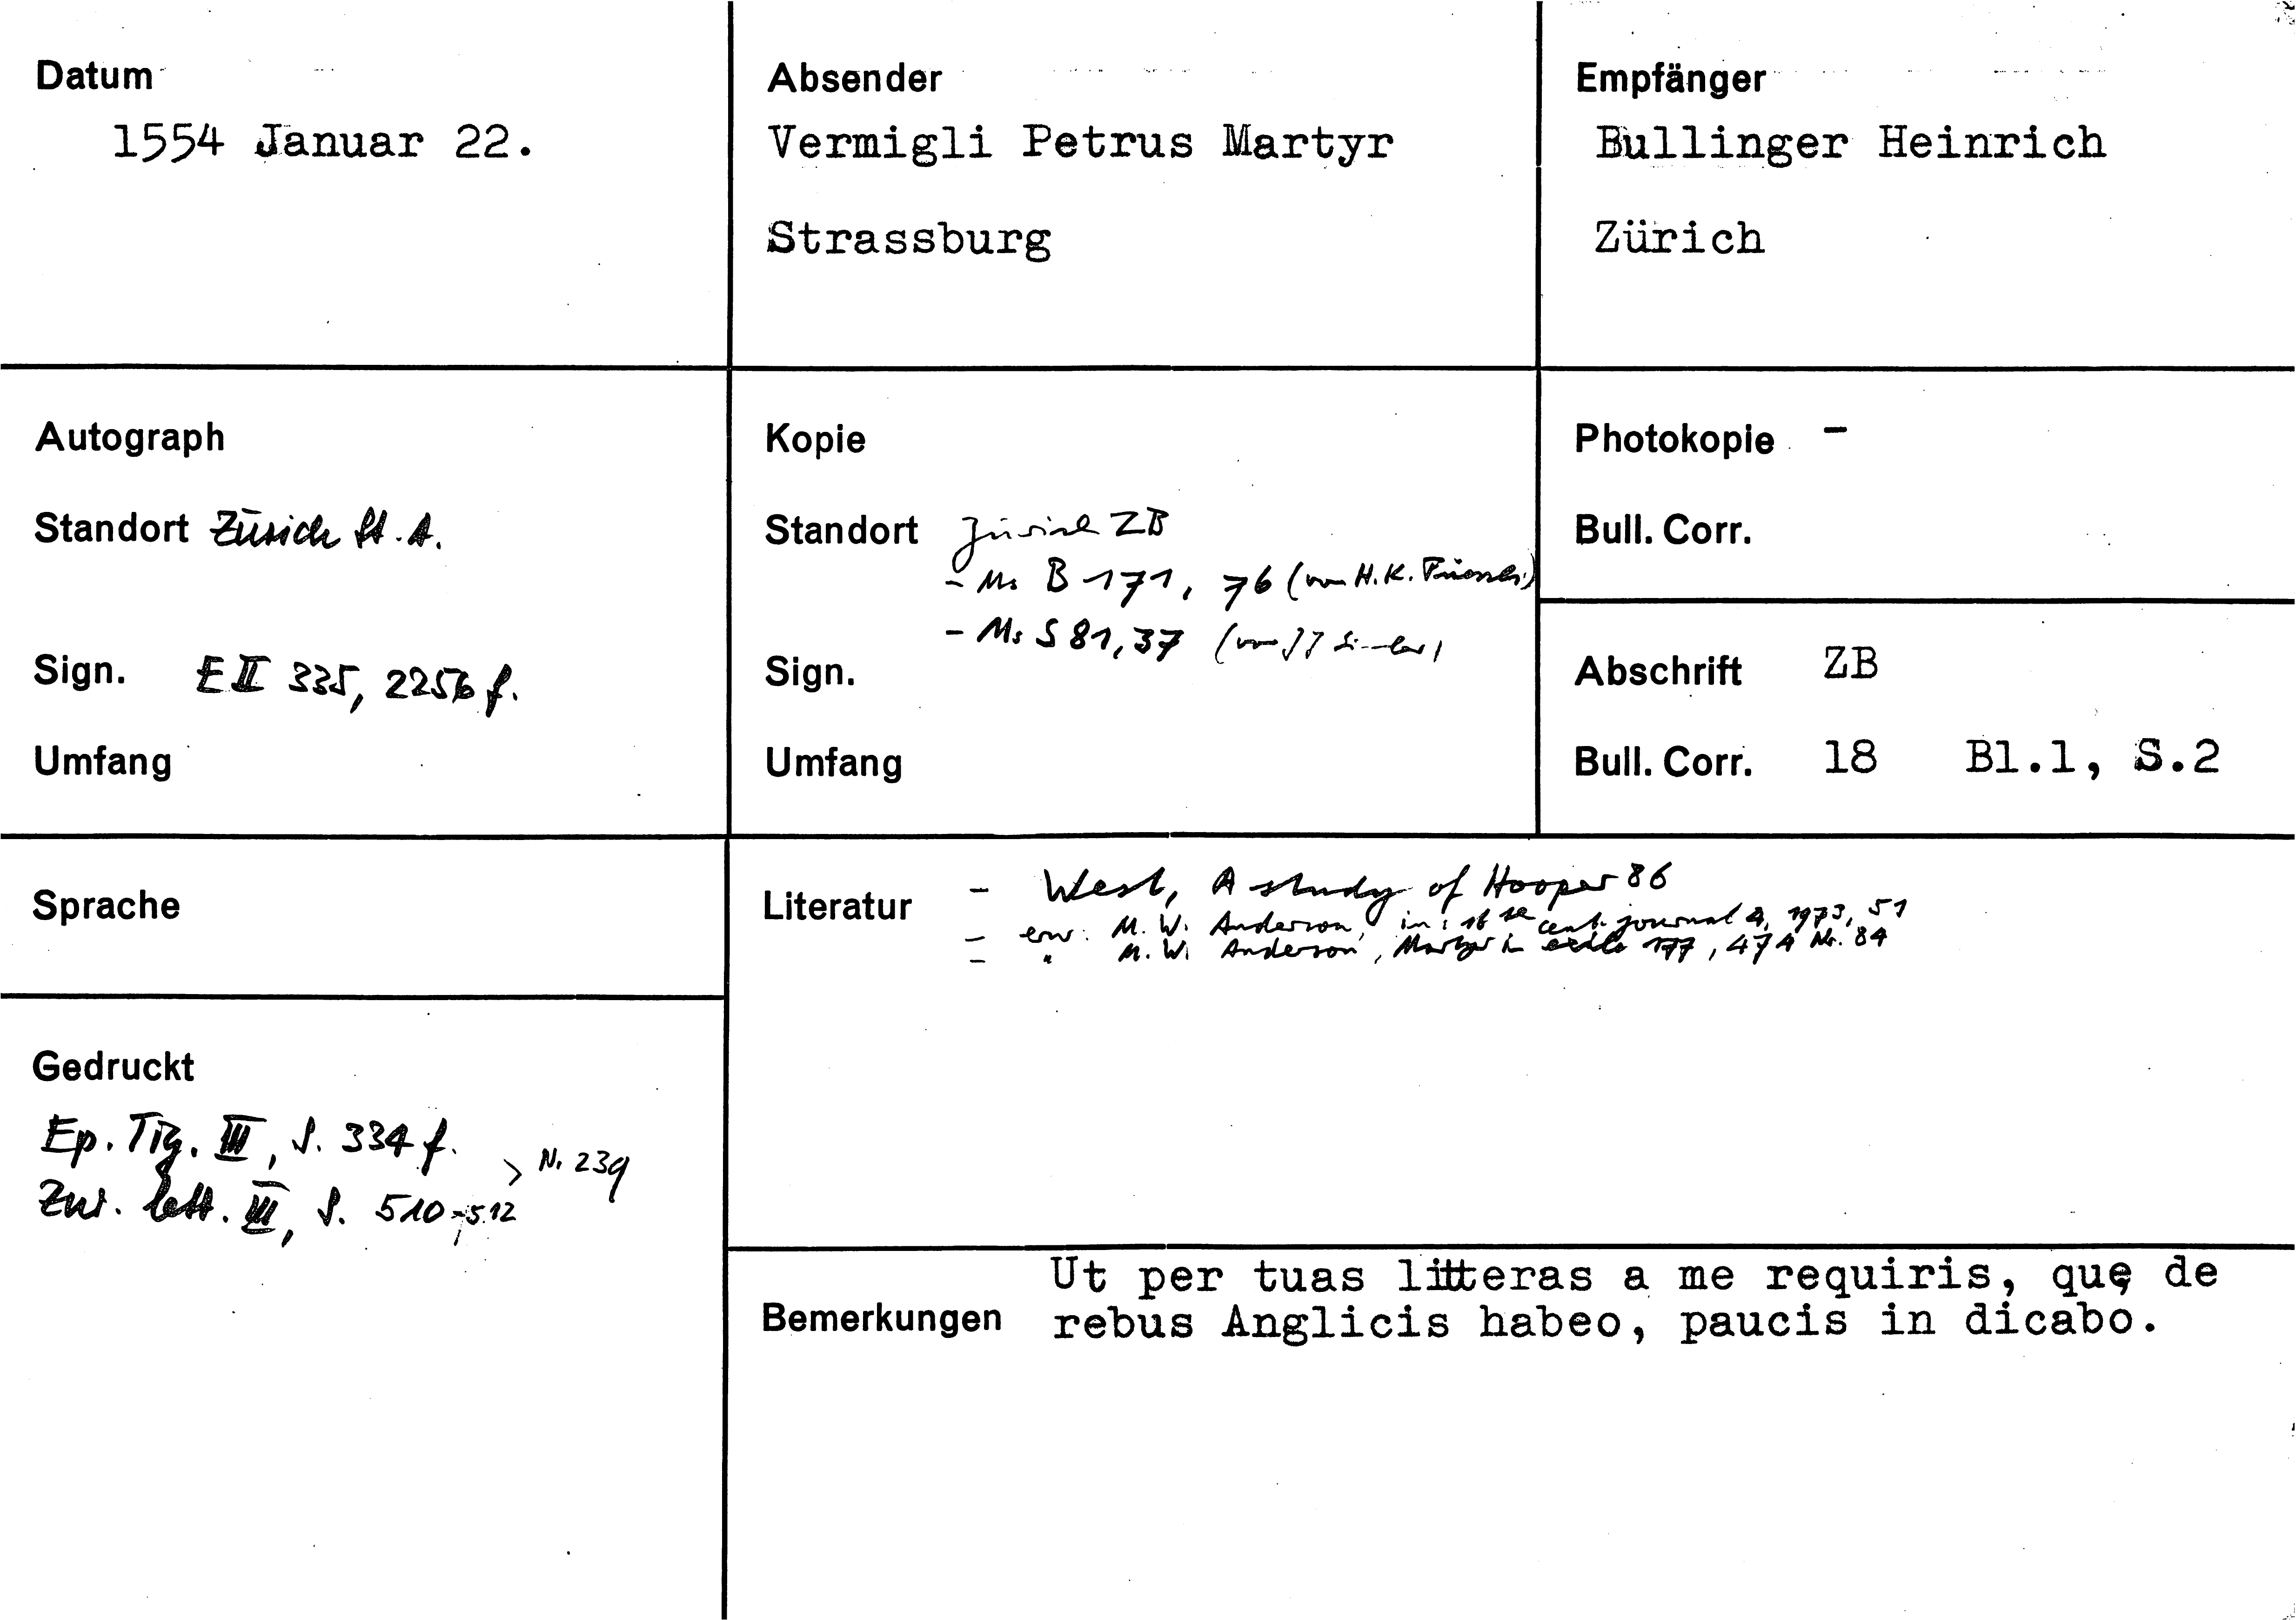 Datum
1554 Januar 22.
Absender
Vermigli Petrus Martyr
Strassburg
Empfänger
Bullinger Heinrich
Zürich
Autograph
Standort Zürich St. A.
Sign. E II 335, 2256 f.
Umfang
Kopie
Standort Zürich ZB
- Ms B 171, 76 (von H. K. Füessli)
- Ms S 81, 37 (von JJ Simler)
Sign.
Umfang
Photokopie -
Bull. Corr.
Abschrift ZB
Bull. Corr. 18 Bl.1, S.2
Sprache
Literatur - West, A study of Hooper 86
- erw. M. W. Anderson, in: 16th cent. journal 4, 1973, 51
- " M. W. Anderson, Martyr in exile 177, 474 Nr. 84
Gedruckt
Ep. Tig. III, S. 334 f.
Zur. lett. III, S. 510-512
> N. 239
Bemerkungen
Ut per tuas litteras a me requiris, quę de
rebus Anglicis habeo, paucis in dicabo.